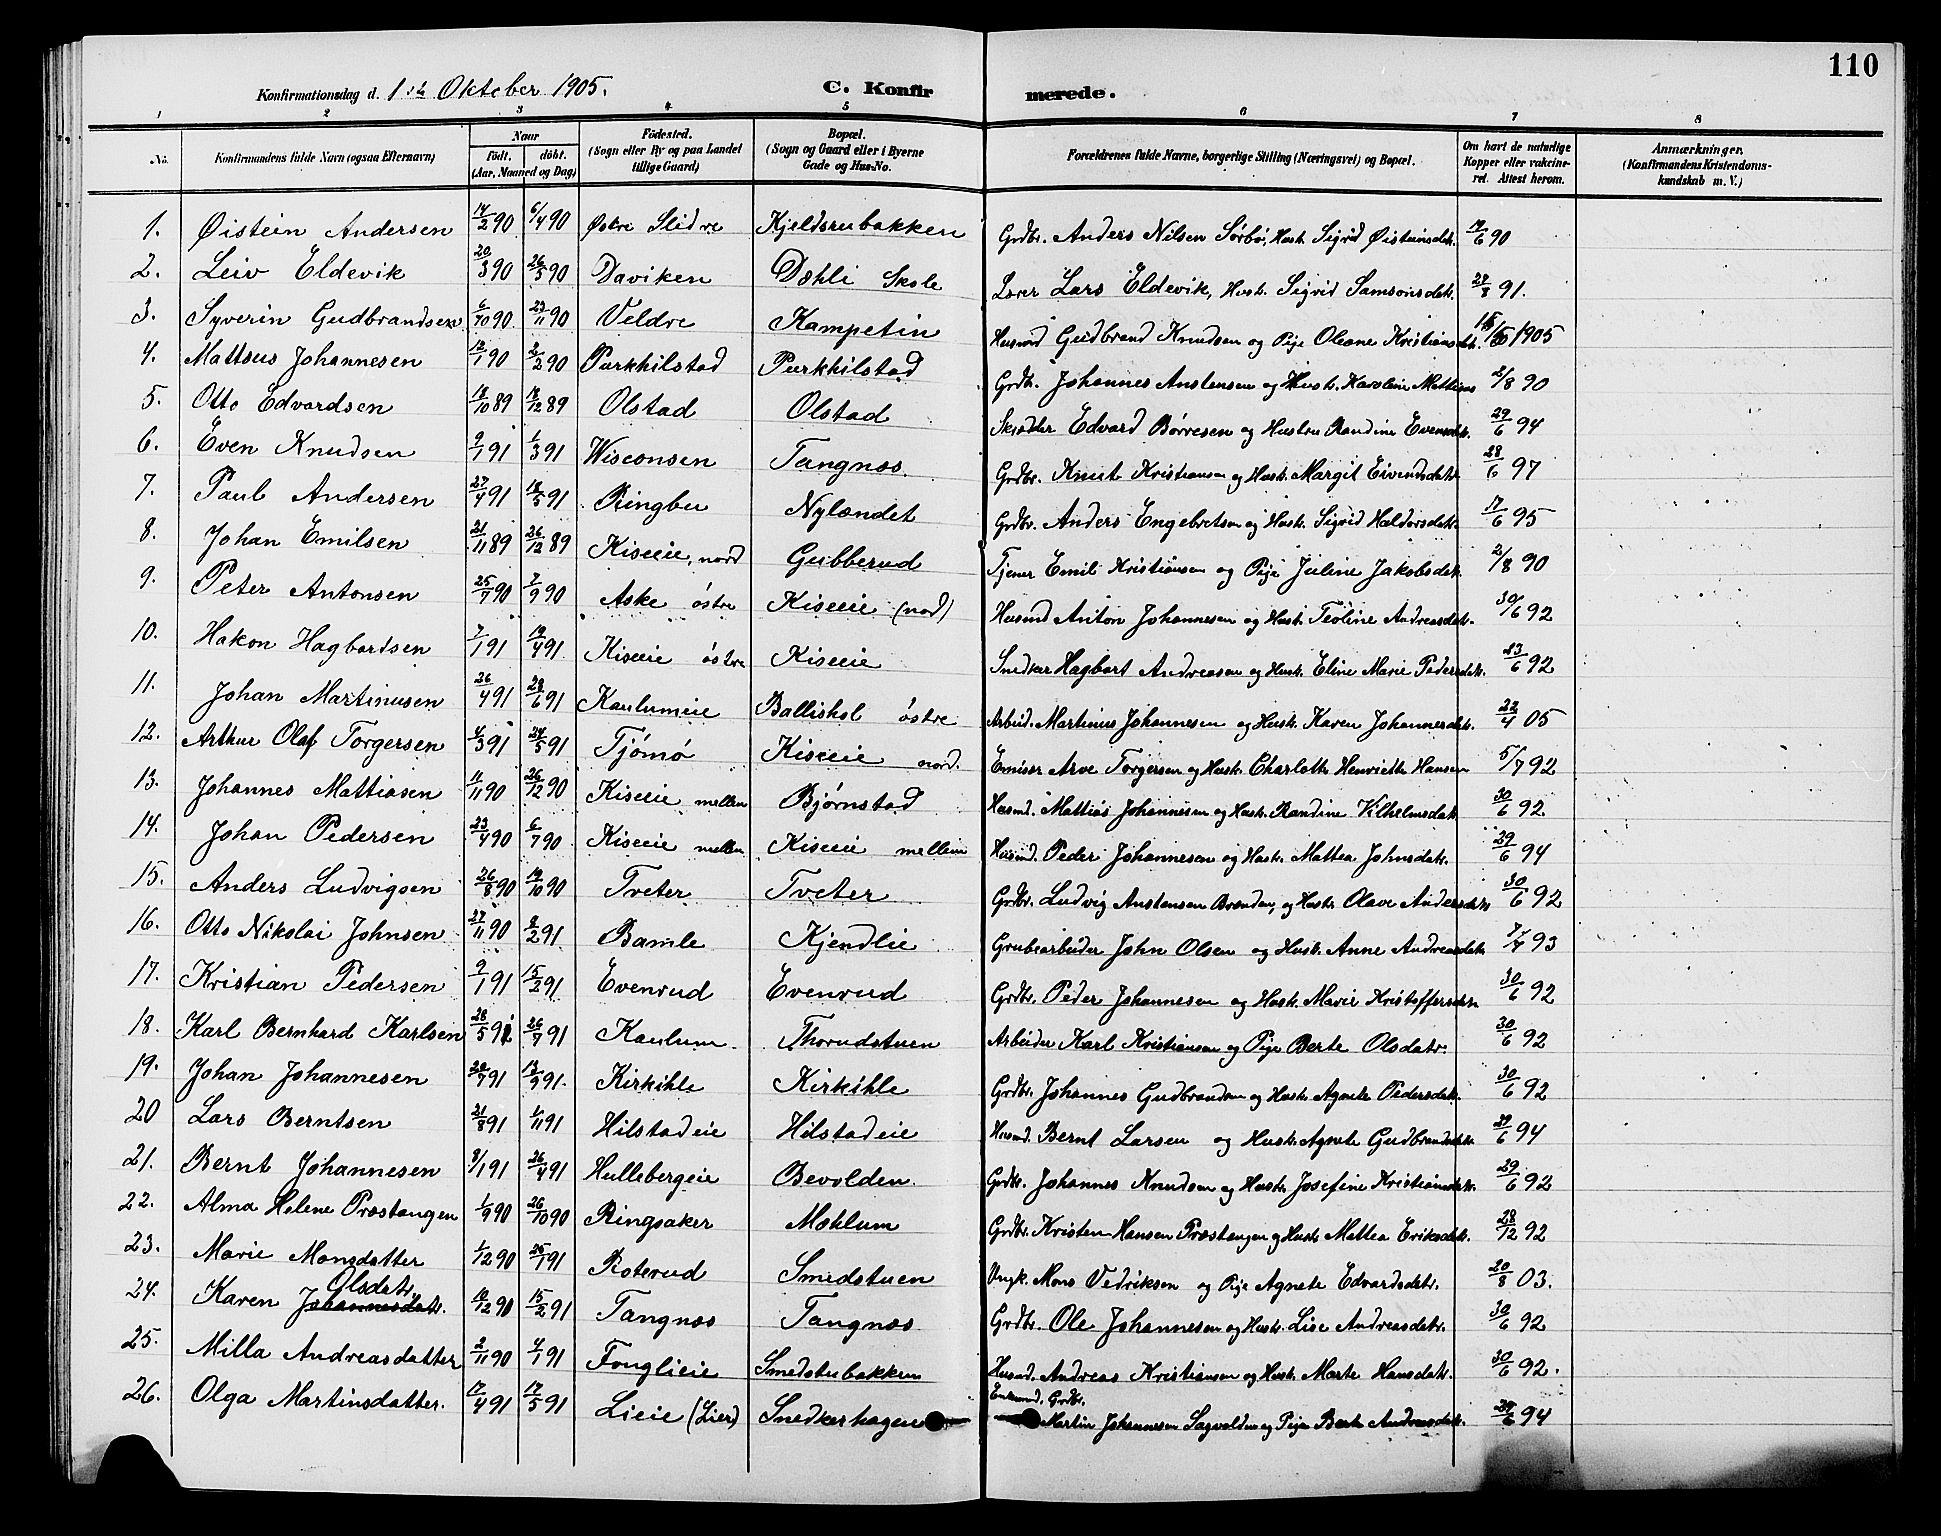 110
Konfirmationsdag d. 1ste Oktober 1905. C. Konfirmerede.
1 2 3 4 5 6 7 8
No. Konfirmandens fulde Navn (ogsaa Efternavn) Naar født, døbt. (Aar, Maaned og Dag) Födested. (Sogn eller By og paa Landet tillige Gaard) Bopæl. (Sogn og Gaard eller i Byerne Gade og Hus-No. Forældrenes fulde Navne, borgerlige Stilling (Næringsvei) og Bopæl. Om havt de naturlige Kopper eller vakcineret. Attest herom. Anmærkninger, (Konfirmandens Kristendomskundskab m. V.)
1. Øistein Andersen 14/2 90 6/4 90 Østre Slidre Kjeldsrubakken Grdbr. Anders Nilsen Sørbø, Hust. Sigrid Øisteinsdtr. 19/6 90
2. Leiv Eldevik 20/3 90 26/5 90 Daviken Dæhli Skole Lærer Lars Eldevik, Hust. Sigrid Samsonsdtr. 27/8 91.
3. Syverin Gudbrandsen 6/10 90 23/11 90 Veldre Kampetin Husmd Gudbrand Knudsen og Pige Oleane Kristiansdtr. 1905
4. Mattæus Johannesen 12/1 90 2/2 90 Purkhilstad Purkhilstad Grdbr. Johannes Anstensen og Hust. Karoline Mattisens 2/8 90
5. Otto Edvardsen 16/10 89 18/12 89 Olstad Olstad Skrædder Edvard Børresen og Hustru Randine Evensdtr. 29/6 94
6. Even Knudsen 9/1 91 1/3 91 Wisconsen Tangnæs. Grdbr. Knut Kristiansen og Hust. Margit Eivindsdatr 28/6 97
7. Paul Andersen 27/4 91 18/5 91 Ringbu Nylændet Grdbr. Anders Engebretsen og Hust. Sigrid Haldorsdatr. 17/6 95
8. Johan Emilsen 21/11 89 26/12 89 Kiseeie, nord Gubberud Tjener Emil Kristiansen og Pige Juline Jakobsdtr. 2/8 90
9. Peter Antonsen 25/7 90 7/9 90 Aske östre Kiseeie (nord) Husmd Anton Johannesen og Hust. Teoline Andreasdtr. 30/6 92
10. Hakon Hagbartsen 7/1 91 19/4 91. Kiseeie östre Kiseeie Snedker Hagbart Andreasen og Hust. Eline Marie Pedersdtr. 23/6 92
11. Johan Martinusen 26/4 91 28/6 91 Kaulumeie Ballishol östre Arbeid. Martinus Johannesen og Hust. Karen Johannesdtr. 22/4 05
12. Arthur Olaf Torgersen 4/3 91 24/5 91 Tjómó Kiseeie nord. Emissr Arve Torgersen og Hust. Charlotte Henriette Hansen 5/7 92
13. Johannes Mattiasen 11/11 90 26/12 90 Kiseeie mellem Bjørnstad Husmd. Mattias Johannesen og Hust. Randine Vilhelmsdatr 30/6 92.
14. Johan Pedersen 23/4 90 6/7 90 Kiseeie mellem Kiseeie mellem Husmd. Peder Johannesen og Hust. Mattea Johnsdatr. 29/6 94
15. Anders Ludvigsen 26/8 90 19/10 90 Tveter Tveter Grdbr. Ludvig Anstensen Brænden, og Hust. Olave Andersdatr 30/6 92
16. Otto Nikolai Johnsen 27/11 90 8/2 91. Bamle Kjendlie Grubearbeider John Olsen og Hust. Anne Andreasdatr. 7/7 93
17. Kristian Pedersen 9/1 91 15/2 91 Evenrud Evenrud Grdbr. Peder Johannesen og Hust. Marie Kristoffersdtr 30/6 92
18. Karl Bernhard Karlsen 28/5 91 26/7 91 Kaulum Thorudstuen Arbeider Karl Kristiansen og Pige Berte Olsdatr. 30/6 92
19. Johan Johannesen 20/7 91 13/9 91. Kirkihle Kirkihle Grdbr. Johannes Gudbrandsen og Hust. Agnete Pedersdatr. 30/6 92
20 Lars Berntsen 21/8 91 1/11 91 Hilstadeie Hilstadeie Husmd. Bernt Larsen og Hust. Agnete Gudbrandsdtr. 29/6 94
21. Bernt Johannesen 8/1 91 26/4 91 Hullebergeie Bevolden. Grdbr. Johannes Knudsen og Hustr. Josefine Kristiansdtr. 29/6 92
22. Alma Helene Præstangen 1/9 90 26/10 90 Ringsaker Mæhlum Grdbr. Kristen Hansen Præstangen og Hust. Mattea Eriksdatr. 28/12 92
23. Marie Monsdatter 1/12 90 25/1 91 Roterud Smedstuen Ungk. Mons Vedriksen og Pige Agnete Edvardsdatr. 20/8 03.
24. Karen Johannesdatr. Olsdatr. 10/12 90 15/2 91 Tangnæs Tangnæs Grdbr. Ole Johannesen og Hust. Lise Andreasdatr. 30/6 92
25. Milla Andreasdatter 2/11 90 4/1 91 Fonglieie Smedstubakken Husmd. Andreas Kristiansen og Hust. Marte Hansdatr. 30/6 92.
26. Olga Martinsdatter. 17/4 91 17/5 91 Lieie (Lier) Snedkerhagen Enkemd. Grdbr. Martin Johannesen Sagvolden og Pige Berte Andreasdatr. 29/6 94